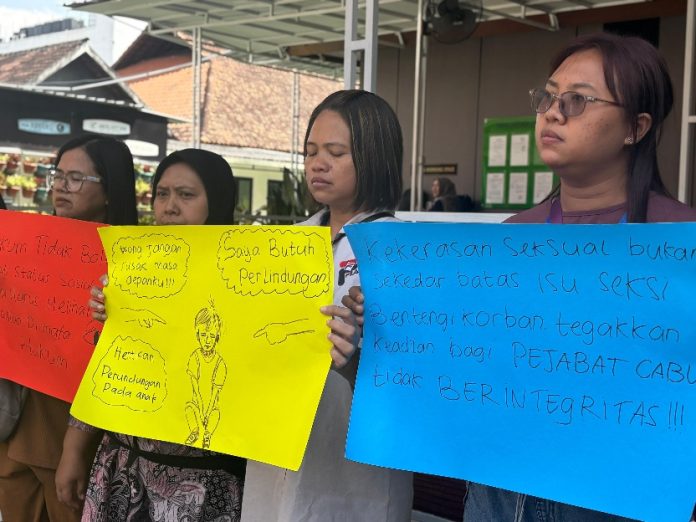 Tidak
status sosial
Tolong Jangan
rusak masa
depanku!!!
Saya Butuh
Perlindungan
Hentikan
Perundungan
Pada anak
Kekerasan seksual bukan
sekedar batas isu seksi
Bentengi korban tegakkan
Keadilan bagi PEJABAT CABUL
tidak BERINTEGRITAS!!!